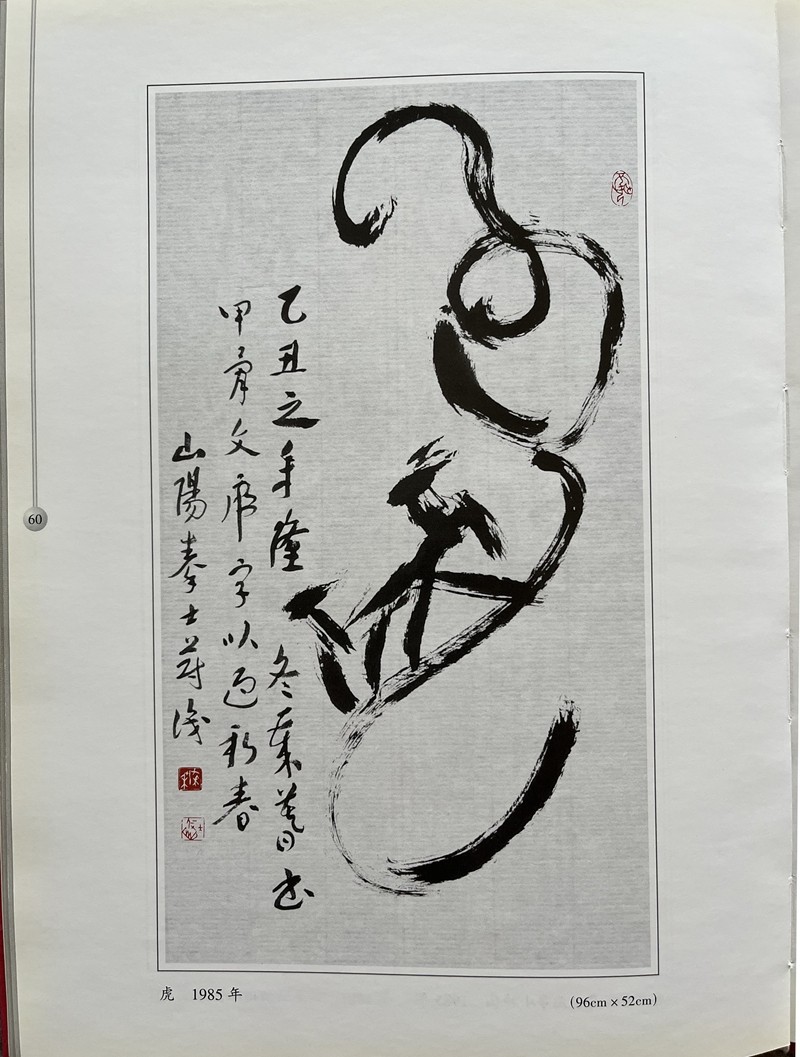 虎
乙丑之年隆冬
书
甲骨文虎字以迎新春
山陽秦士蔚
60
虎 1985 年
(96cm × 52cm)